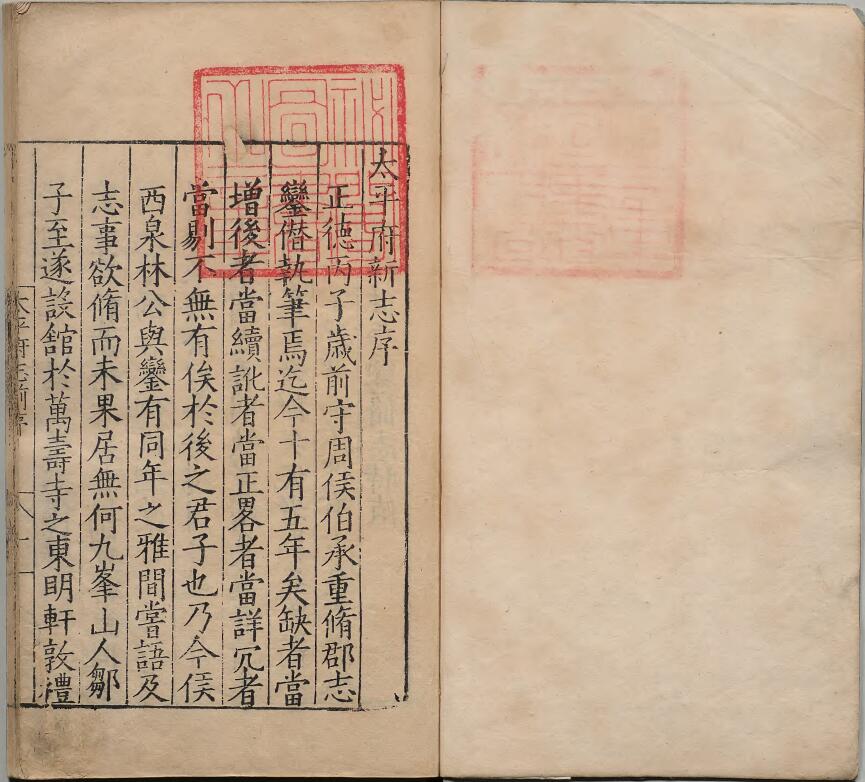 太平府新志序
正德丙子歲前守周侯伯承重脩郡志
鑾僣執筆焉迄今十有五年矣缺者當
增後者當續訛者當正畧者當詳冗者
當剔不無有俟於後之君子也乃今侯
西泉林公與鑾有同年之雅間嘗語及
志事欲脩而未果居無何九峯山人鄒
子至遂設舘於萬壽寺之東明軒敦禮
太平府志前序